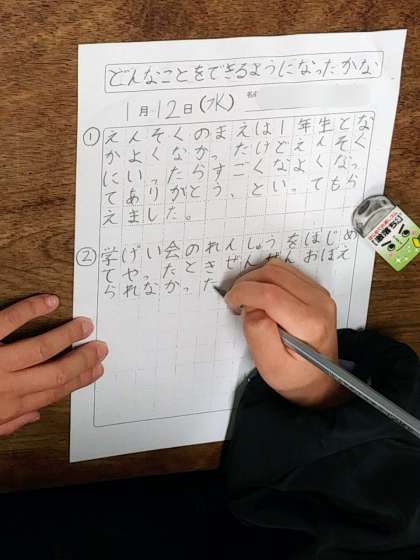 どんなことをできるようになったかな
1月12日(水)
①えんそくのまえは1年生とな
かよくなかったけどえんそく
にいったらすごくなよくなっ
てありがとう、といってもら
えました。
②学げい会のれんしゅうをはじめ
てやったときぜんぜんおぼえ
られなかった